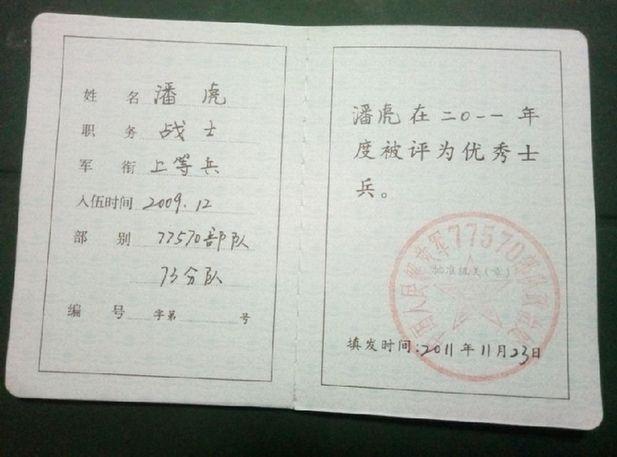 姓 名 潘虎
职 务 战士
军 衔 上等兵
入伍时间 2009.12
部 别 77570部队
73分队
编 号 字第 号
潘虎在二〇一一年
度被评为优秀士
兵。
中国人民解放军77570部队政治处
批准机关(章)
填发时间:2011年11月23日